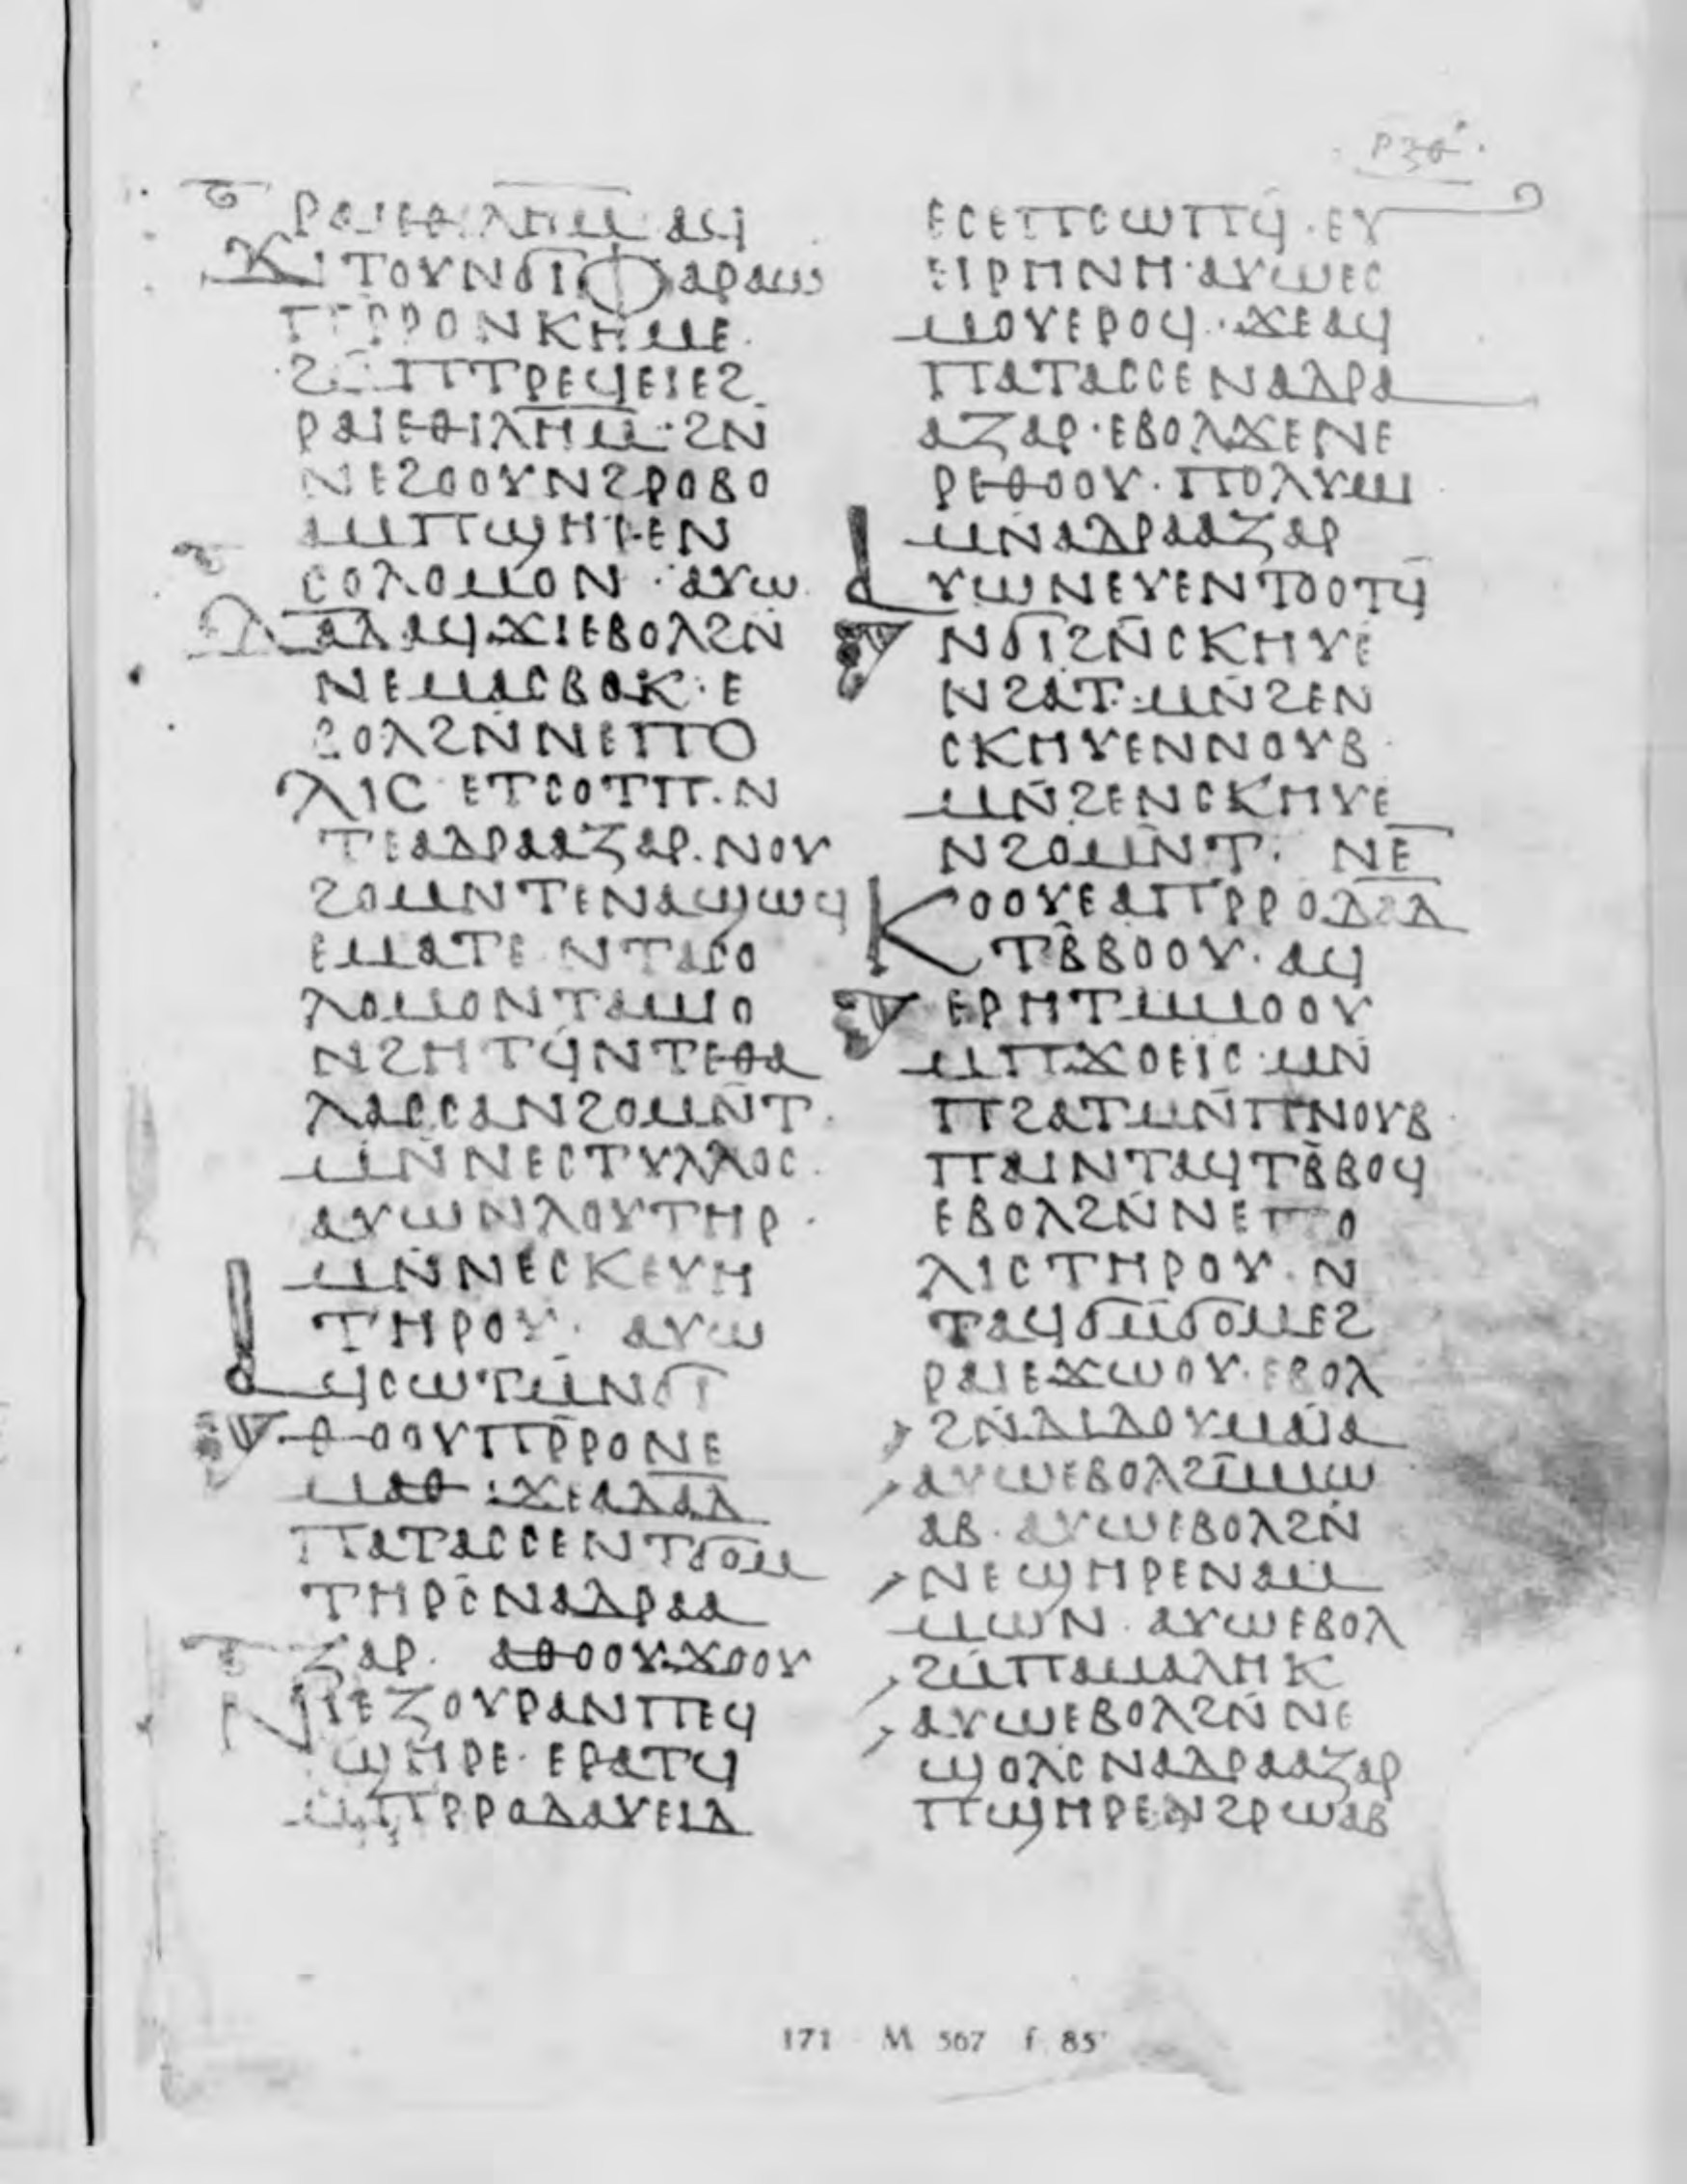 ⲣⲝⲑ
ⲣⲁⲓⲉⲑⲓⲗⲏⲙ ⲁϥ
ϫⲓⲧⲟⲩⲛϭⲓⲫⲁⲣⲁⲱ
ⲡⲣⲣⲟⲛⲕⲏⲙⲉ·
ϩⲙⲡⲧⲣⲉϥⲉⲓⲉϩ
ⲣⲁⲓⲉⲑⲓⲗⲏⲙ·ϩⲛ
ⲛⲉϩⲟⲟⲩⲛϩⲣⲟⲃⲟ
ⲁⲙⲡϣⲏⲣⲉⲛ
ⲥⲟⲗⲟⲙⲱⲛ·ⲁⲩⲱ
ⲇⲁⲇ ⲁϥϫⲓⲉⲃⲟⲗϩⲛ
ⲛⲉⲙⲁⲥⲃⲁⲕ·ⲉ
ⲃⲟⲗϩⲛⲛⲉⲡⲟ
ⲗⲓⲥ ⲉⲧⲥⲟⲧⲡ·ⲛ
ⲧⲉⲁⲇⲣⲁⲁⲍⲁⲣ·ⲛⲟⲩ
ϩⲟⲙⲛⲧⲉⲛⲁϣⲱϥ
ⲉⲙⲁⲧⲉ ⲛⲧⲁⲥⲟ
ⲗⲟⲙⲱⲛⲧⲁⲙⲓⲟ
ⲛϩⲏⲧϥⲛⲧⲉⲑⲁ
ⲗⲁⲥⲥⲁⲛϩⲟⲙⲛⲧ·
ⲙⲛⲛⲉⲥⲧⲩⲗⲗⲟⲥ·
ⲁⲩⲱⲛⲗⲟⲩⲧⲏⲣ·
ⲙⲛⲛⲉⲥⲕⲉⲩⲏ
ⲧⲏⲣⲟⲩ· ⲁⲩⲱ
ⲁϥⲥⲱⲧⲙⲛϭⲓ
ⲑⲟⲟⲩⲡⲣⲣⲟⲛⲉ
ⲙⲁⲑ·ϫⲉⲁⲇⲁⲇ
ⲡⲁⲧⲁⲥⲥⲉⲛⲧϭⲟⲙ
ⲧⲏⲣⲥⲛⲁⲇⲣⲁⲁ
ⲍⲁⲣ· ⲁⲑⲟⲟⲩϫⲟⲟⲩ
ⲛⲓⲉⲍⲟⲩⲣⲁⲛⲡⲉϥ
ϣⲏⲣⲉ·ⲉⲣⲁⲧϥ
ⲙⲡⲣⲣⲟⲇⲁⲩⲉⲓⲇ
ⲉⲥⲉⲡⲥⲱⲡϥ·ⲉⲩ
ⲉⲓⲣⲏⲛⲏ·ⲁⲩⲱⲉⲥ
ⲙⲟⲩⲉⲣⲟϥ·ϫⲉⲁϥ
ⲡⲁⲧⲁⲥⲥⲉⲛⲁⲇⲣⲁ
ⲁⲍⲁⲣ·ⲉⲃⲟⲗϫⲉⲛⲉ
ⲣⲉⲑⲟⲟⲩ·ⲡⲟⲗⲩⲙ
ⲙⲛⲁⲇⲣⲁⲁⲍⲁⲣ
ⲁⲩⲱⲛⲉⲩⲉⲛⲧⲟⲟⲧϥ
ⲛϭⲓϩⲛⲥⲕⲏⲩⲉ
ⲛϩⲁⲧ·ⲙⲛϩⲉⲛ
ⲥⲕⲏⲩⲉⲛⲛⲟⲩⲃ
ⲙⲛϩⲉⲛⲥⲕⲏⲩⲉ
ⲛϩⲟⲙⲛⲧ· ⲛⲉ
ⲕⲟⲟⲩⲉⲁⲡⲣⲣⲟⲇⲁⲇ
ⲧⲃⲃⲟⲟⲩ·ⲁϥ
ⲉⲣⲏⲧⲙⲙⲟⲟⲩ
ⲙⲡϫⲟⲉⲓⲥ·ⲙⲛ
ⲡϩⲁⲧⲙⲛⲡⲛⲟⲩⲃ
ⲡⲁⲓⲛⲧⲁϥⲧⲃⲃⲟϥ
ⲉⲃⲟⲗϩⲛⲛⲉⲡⲟ
ⲗⲓⲥⲧⲏⲣⲟⲩ·ⲛ
ⲧⲁϥϭⲙϭⲟⲙⲉϩ
ⲣⲁⲓⲉϫⲱⲟⲩ·ⲉⲃⲟⲗ
ϩⲛⲇⲓⲇⲟⲩⲙⲁⲓⲁ
ⲁⲩⲱⲉⲃⲟⲗϩⲙⲙⲱ
ⲁⲃ·ⲁⲩⲱⲉⲃⲟⲗϩⲛ
ⲛⲉϣⲏⲣⲉⲛⲁⲙ
ⲙⲱⲛ·ⲁⲩⲱⲉⲃⲟⲗ
ϩⲙⲡⲁⲙⲁⲗⲏⲕ
ⲁⲩⲱⲉⲃⲟⲗϩⲛⲛⲉ
ϣⲟⲗⲥⲛⲁⲇⲣⲁⲁⲍⲁⲣ
ⲡϣⲏⲣⲉⲛϩⲣⲱⲁⲃ
171 M 567 f. 85ʳ